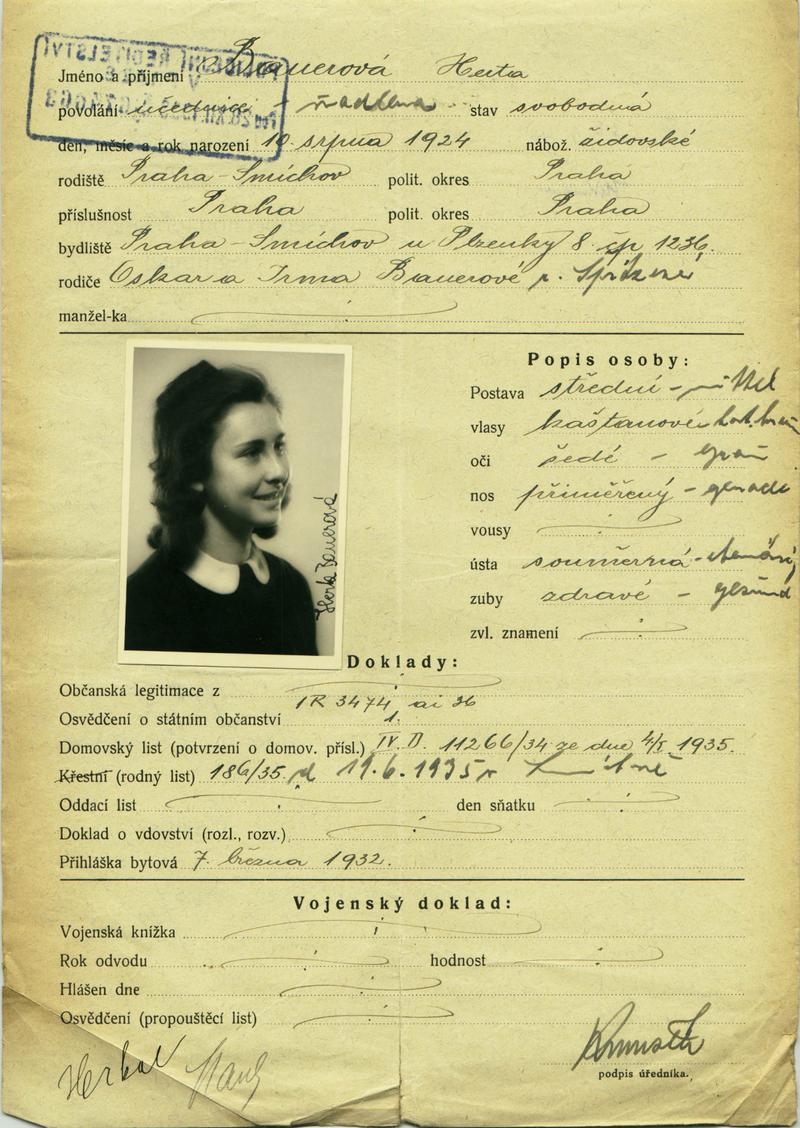 Jméno a příjmení Bauerová Herta
povolání učednice - švadlena stav svobodná
den, měsíc a rok narození 10 srpna 1924 nábož. židovské
rodiště Praha-Smíchov polit. okres Praha
příslušnost Praha polit. okres Praha
bydliště Praha-Smíchov u Plzenky 8 čp 1236,
rodiče Oskar a Irma Bauerové r.
manžel-ka
Popis osoby:
Postava střední - mittel
vlasy kaštanové
oči šedé - grau
nos přiměřený - gerade
vousy
ústa souměrná
zuby zdravé - gesund
zvl. znamení
Herta Bauerová
Doklady:
Občanská legitimace z
IR 3474 ai 36
Osvědčení o státním občanství 1.
Domovský list (potvrzení o domov. přísl.) IV. D. 11266/34 ze dne 4/I 1935.
Křestní (rodný list) 186/35 d 19.6.1935
Oddací list den sňatku
Doklad o vdovství (rozl., rozv.)
Přihláška bytová 7. března 1932.
Vojenský doklad:
Vojenská knížka
Rok odvodu hodnost
Hlášen dne
Osvědčení (propouštěcí list)
podpis úředníka.